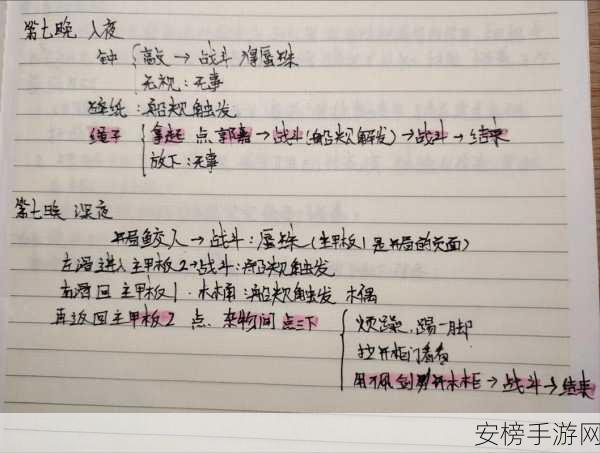 第七晚 入夜
钟 敲 → 战斗 得蜃珠
无视:无事
壁纸:船规触发
绳子 拿起 点 郭嘉 → 战斗(船规触发) → 战斗 → 结束
放下:无事
第七晚 深夜
开局鲛人 → 战斗:蜃珠(主甲板1是开局的页面)
左滑进入主甲板2→战斗:船规触发
右滑回 主甲板1.水桶:船规触发 木偶
再返回主甲板2 点 杂物间 点三下
烦躁,踢一脚
拉开柜门看看
用佩剑 开木柜 → 战斗 → 结束
安榜手游网